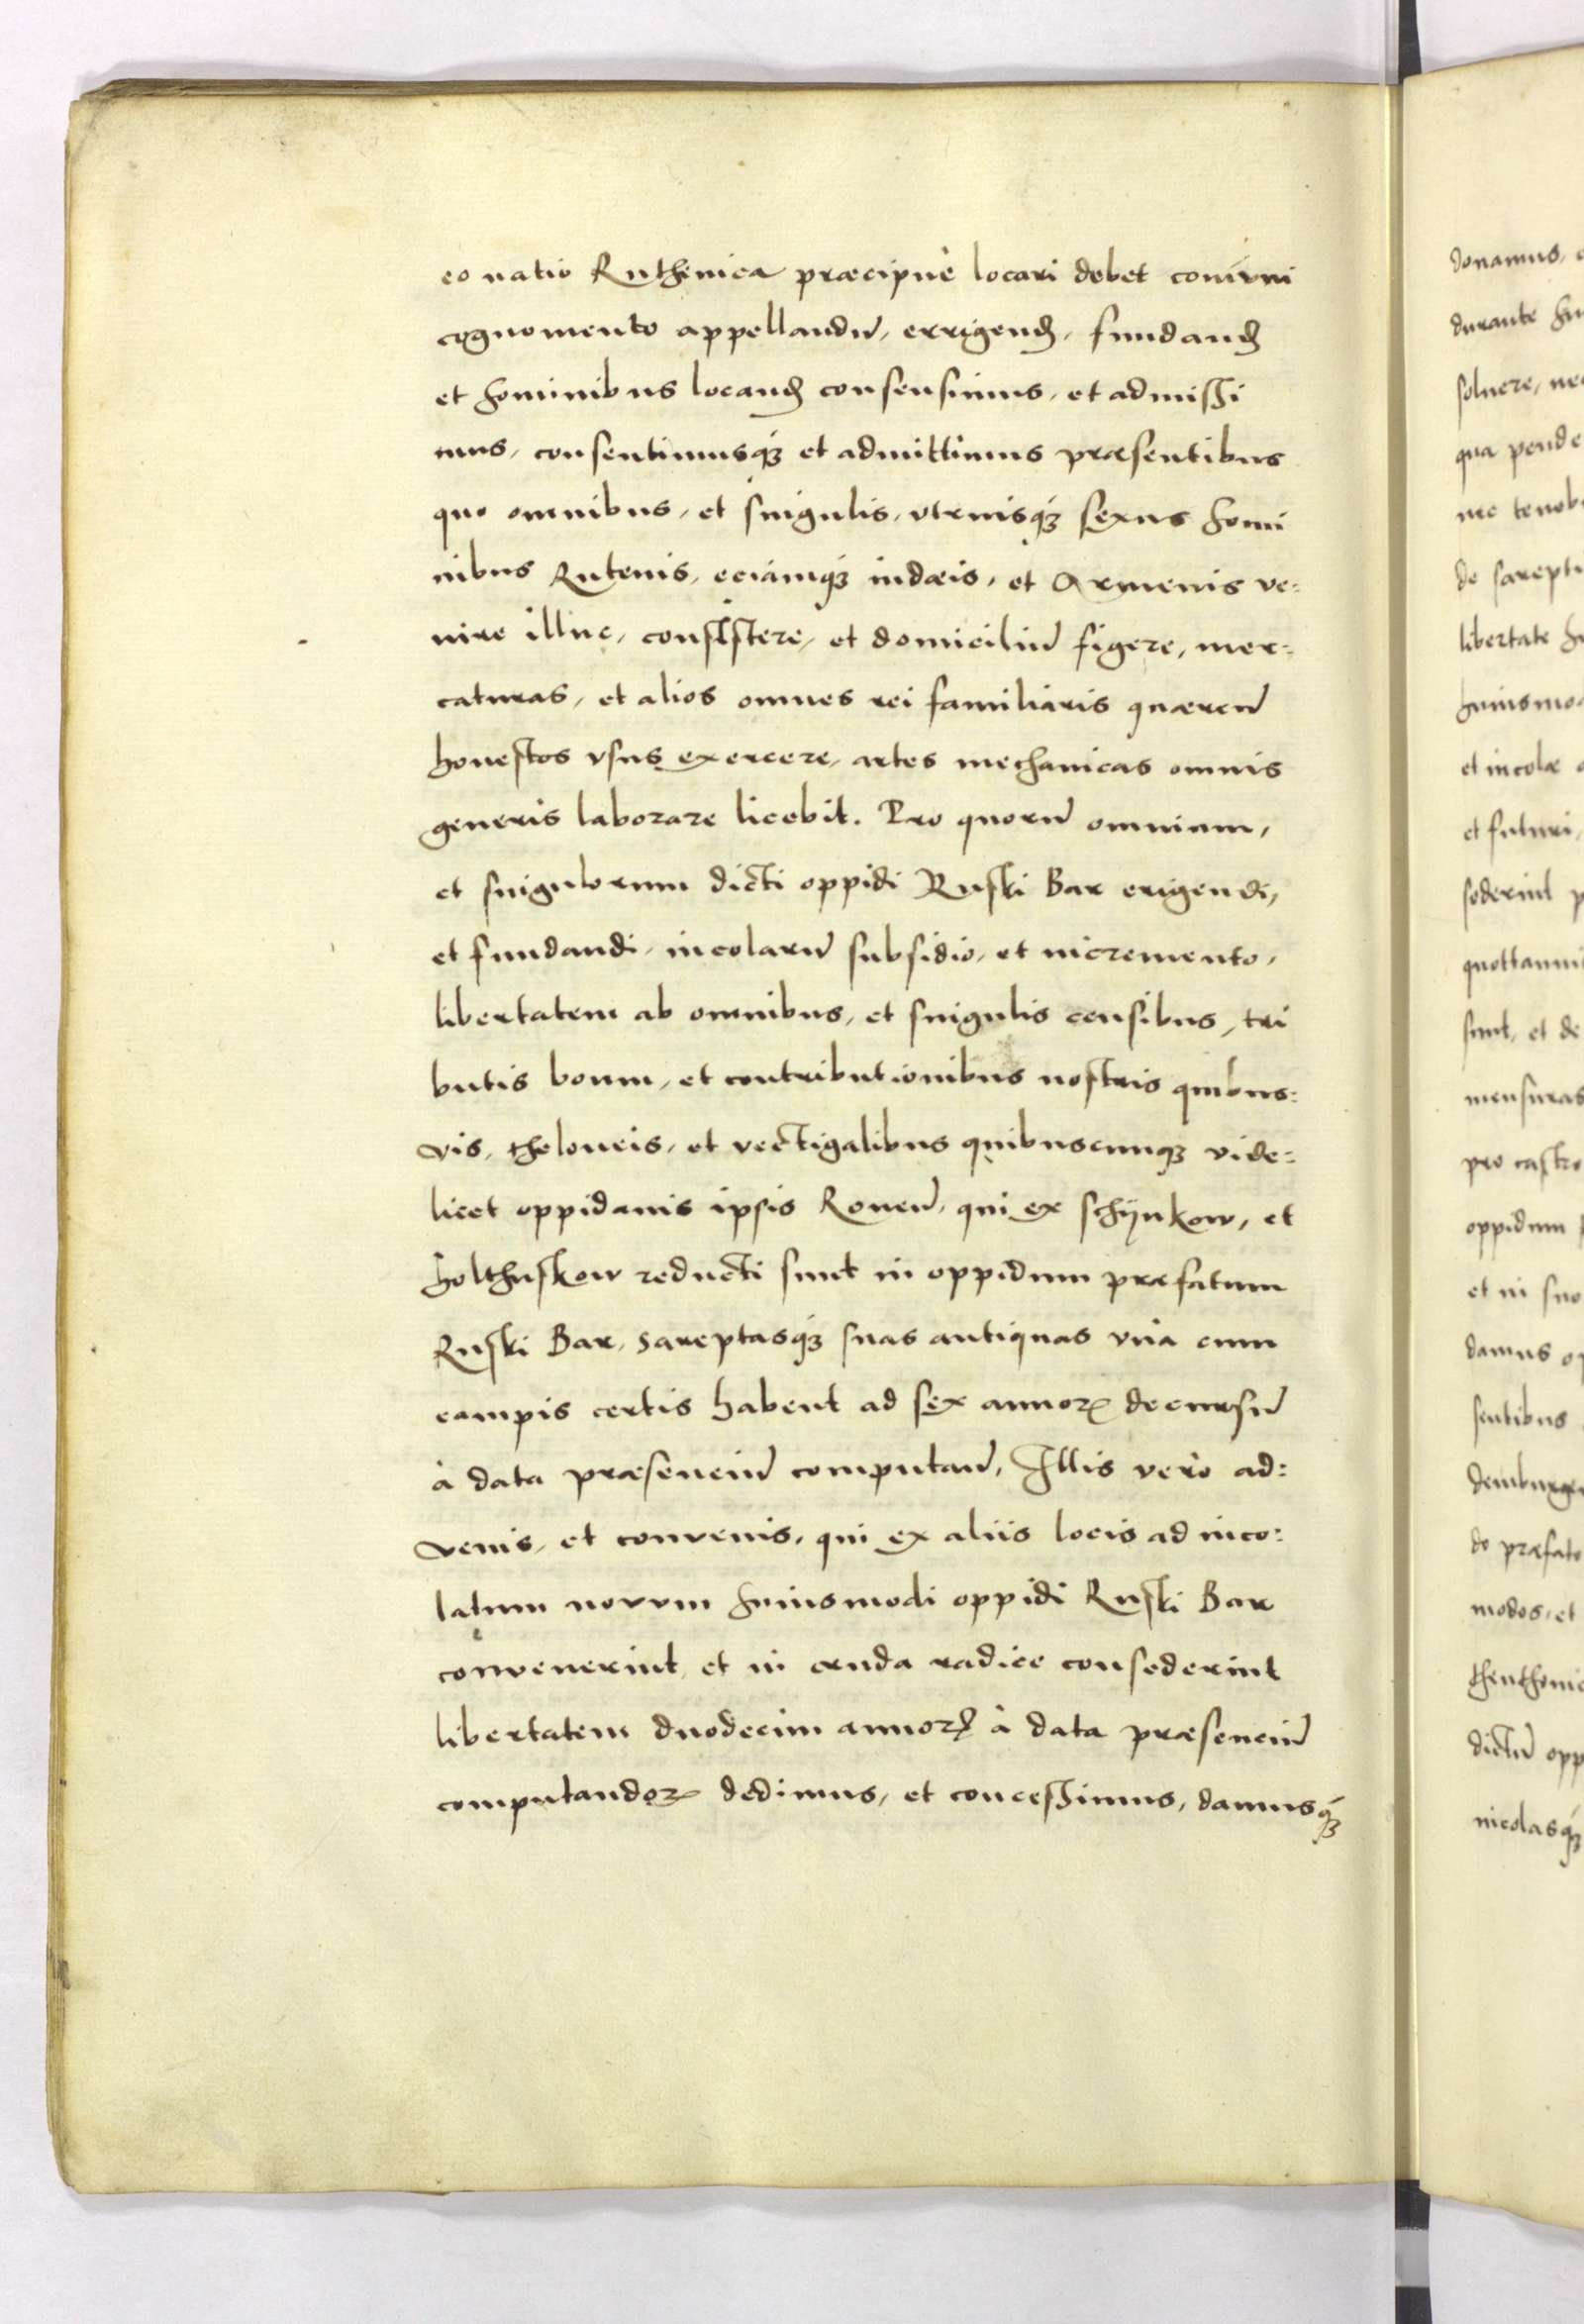 eo natio Ruthenica præcipuè locari debet comivni
cognomento appellandū, errigend, fundand
et hominibus locand consensimus, et admissi
mus, consentimusq́ʒ et admittimus præsentibus
quo omnibus, et singulis, vtriusq́ʒ sexus homi
nibus Rutenis, eciámq́ʒ iudæis, et Armenis ve:
nire illuc, consistere, et domiciliū figere, mer:
caturas, et alios omnes rei familiaris quærend
honestos vsus exercere, artes mechanicas omnis
generis laborare licebit. Pro quorū omnium,
et singulorum dicti oppidi Ruski Bar erigendi,
et fundandi, incolarū subsidio, et incremento,
libertatem ab omnibus, et singulis censibus, tri
butis boum, et contributionibus nostris quibus:
vis, theloneis, et vectigalibus quibuscunqʒ vide:
licet oppidanis ipsis Rouen, qui ex schijnkow, et
holthuskow reducti sunt in oppidum præfatum
Ruski Bar, sareptasq́ʒ suas antiquas vnà cum
campis certis habent ad sex annoꝝ decursū
à data præsenciū computan, Illis verò ad:
venis, et convenis, qui ex aliis locis ad inco:
latum novvm huiusmodi oppidi Ruski Bar
convenerint, et in cruda radice consederint
libertatem duodecim annoꝝ à data præsenciū
computandoꝝ dedimus, et concessimus, damusq́ʒ
donamus,
durante
soluere,
qua pende
de sarepti
libertate
huiusmo
et incolæ
et futuri,
sederint
quottanni
sunt, et de
mensuras
pro castro
oppidum
et in suo
damus
sentibus
demburge
do præfato
modos, et
theuthonic
dictū opp
incolasq́ʒ